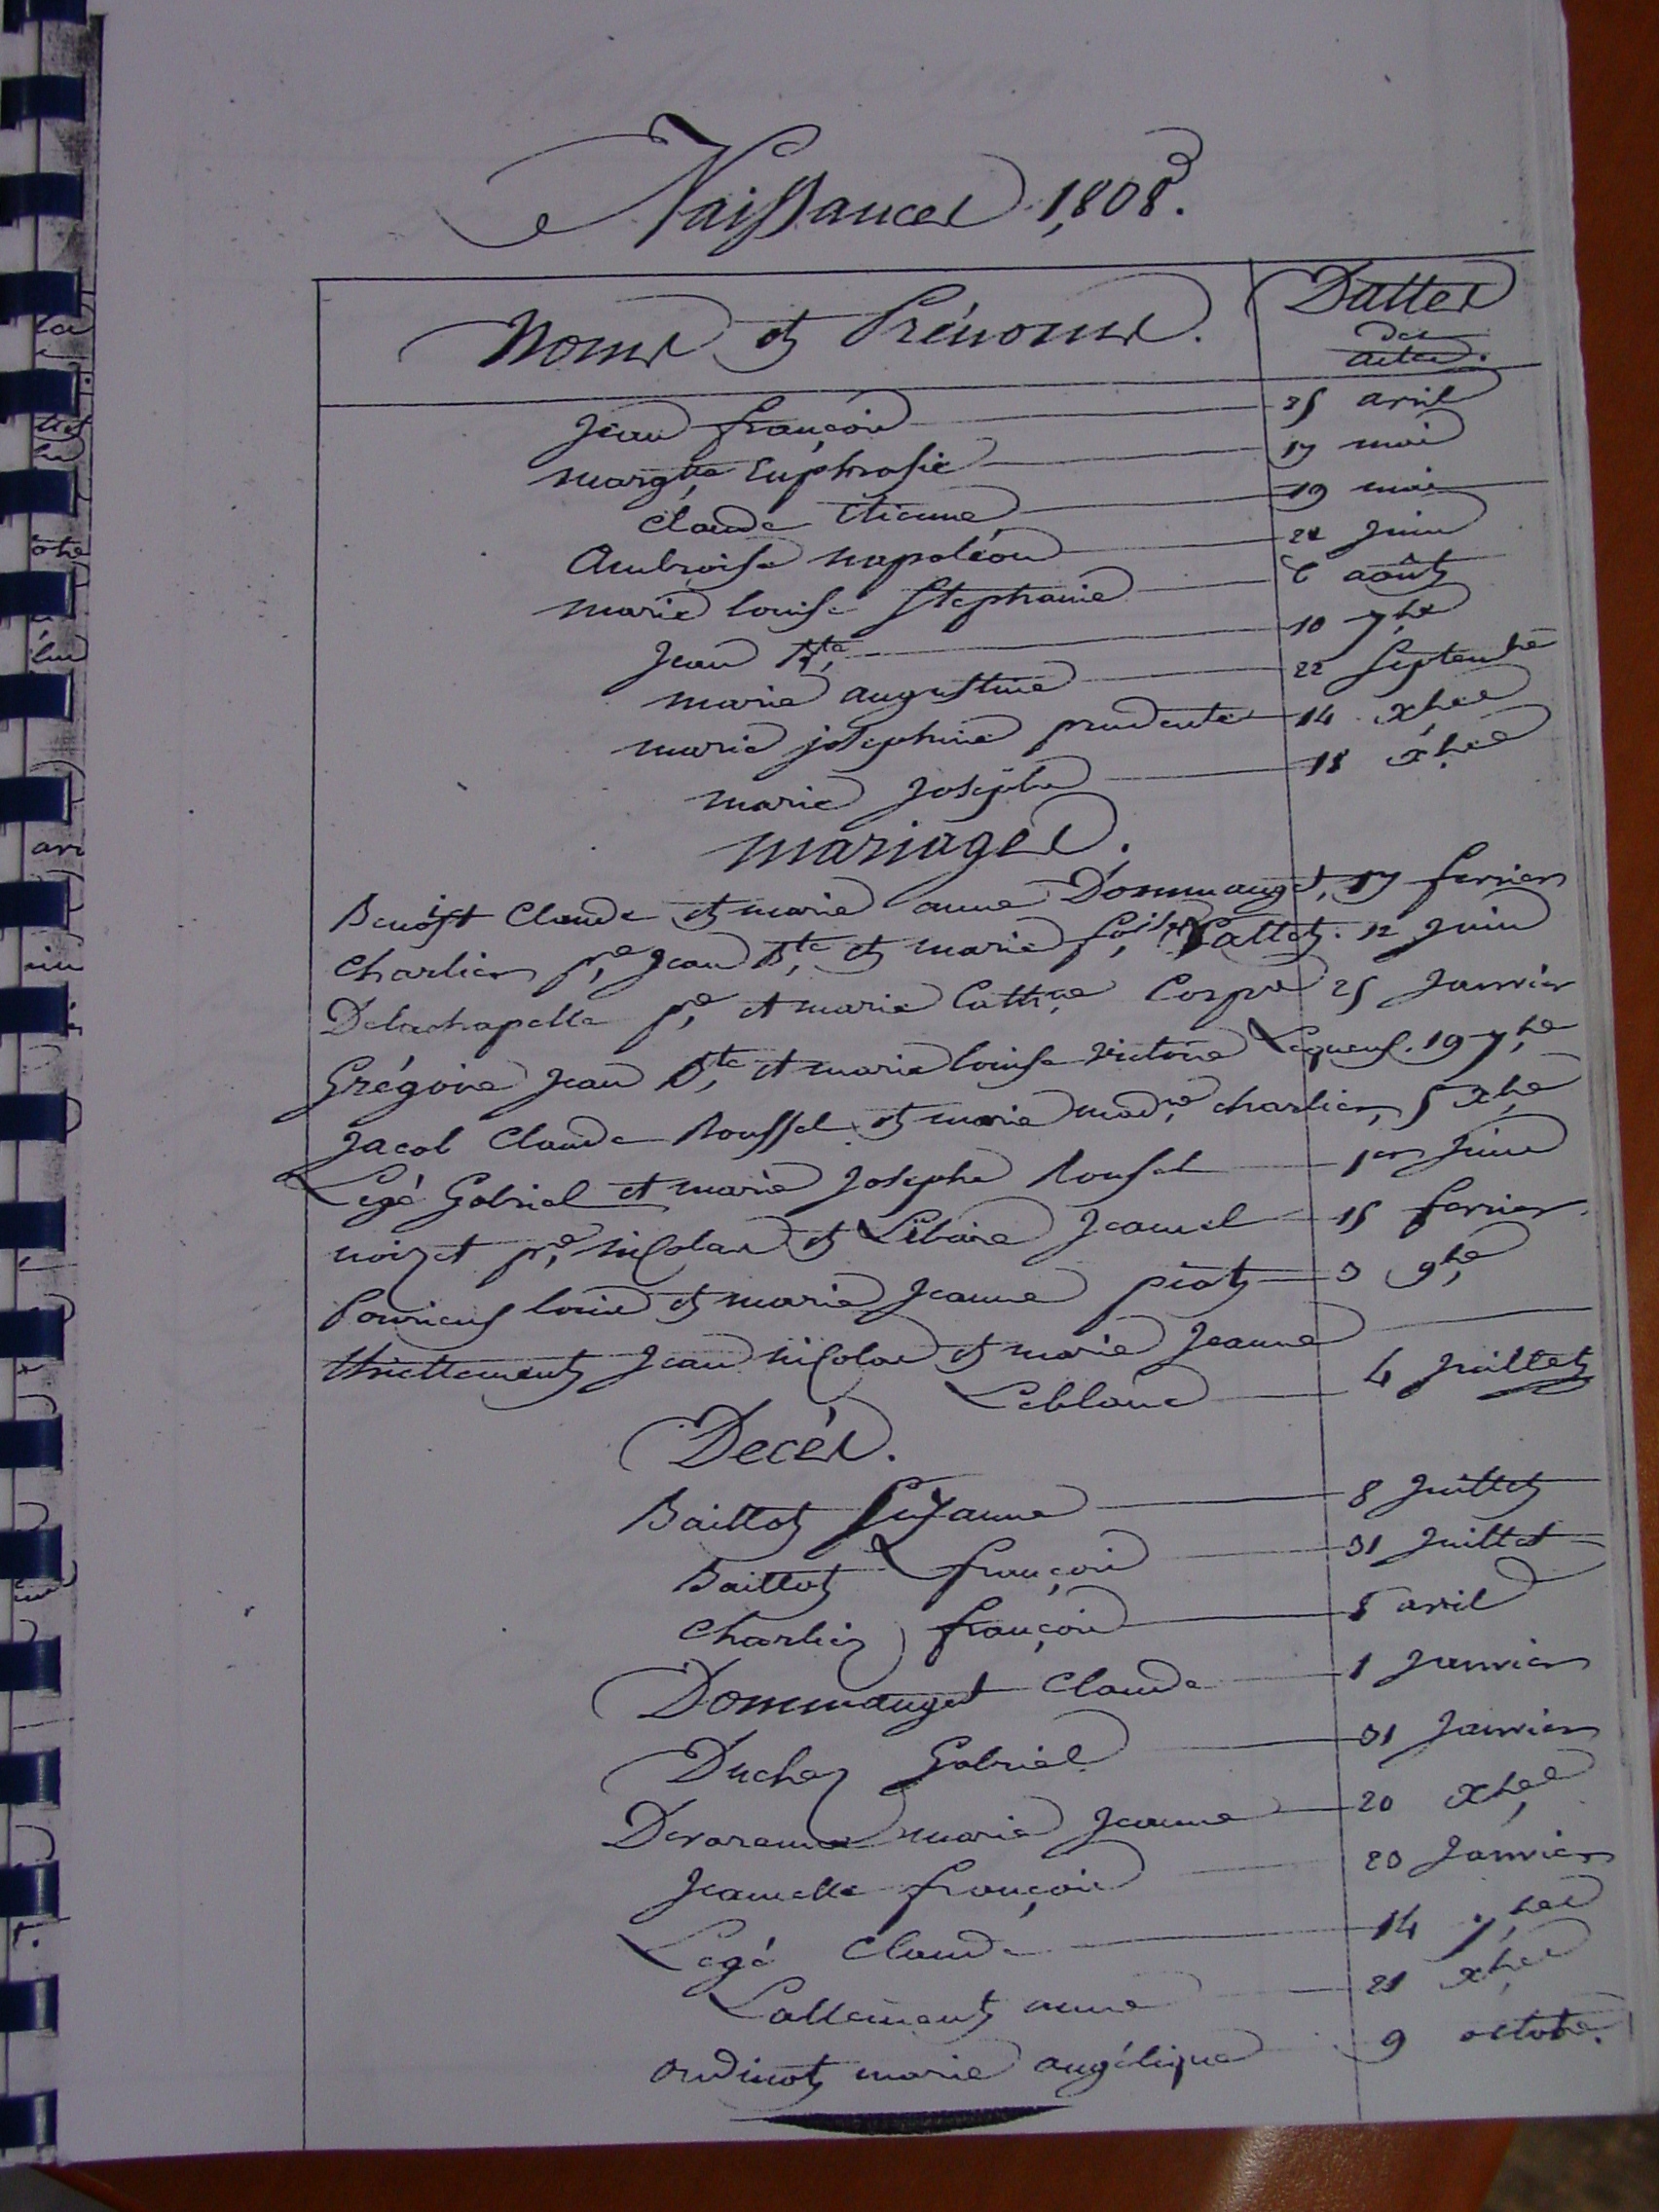 Naissances 1,808.
Noms et Prénoms.
Dattes
des
actes.
Jean françois 25 avril
margtte Euphrasie 17 mai
Claude Etienne 19 mai
Ambroise napoléon 22 Juin
marie louise Stephanie 6 août
Jean Bte 10 7bre
marie augustine 22 Septembre
marie josephine prudente 14 xbre
marie Josephe 18 xbre
mariages.
Benoist Claude et marie anne Dommanget, 17 fevrier
Charlier pre Jean Bte et marie Pattet. 12 Juin
Delachapelle pre et marie Cathne 25 Janvier
Grégoire Jean Bte et marie louise victoire Lequeux. 19 7bre
Jacob Claude Roussel et marie madne charlier, 5 xbre
Legé Gabriel et marie Josephe Rousel 1er Juin
noizet pre nicolas et Libaire Jeannel 15 fevrier.
louis et marie Jeanne piot 3 9bre
thriettement Jean nicolas et marie Jeanne
Leblanc 4 Juillet
Decés.
Baillot Suzanne 8 Juillet
Baillot françois 31 Juillet
Charlier françois 8 avril
Dommanget Claude 1 Janvier
Duchez Gabriel 31 Janvier
marie Jeanne 20 xbre
Jeannelle françois 23 Janvier
Legé Claude 14 7bre
Lallement anne 21 xbre
oudinot marie angélique 9 octobre.